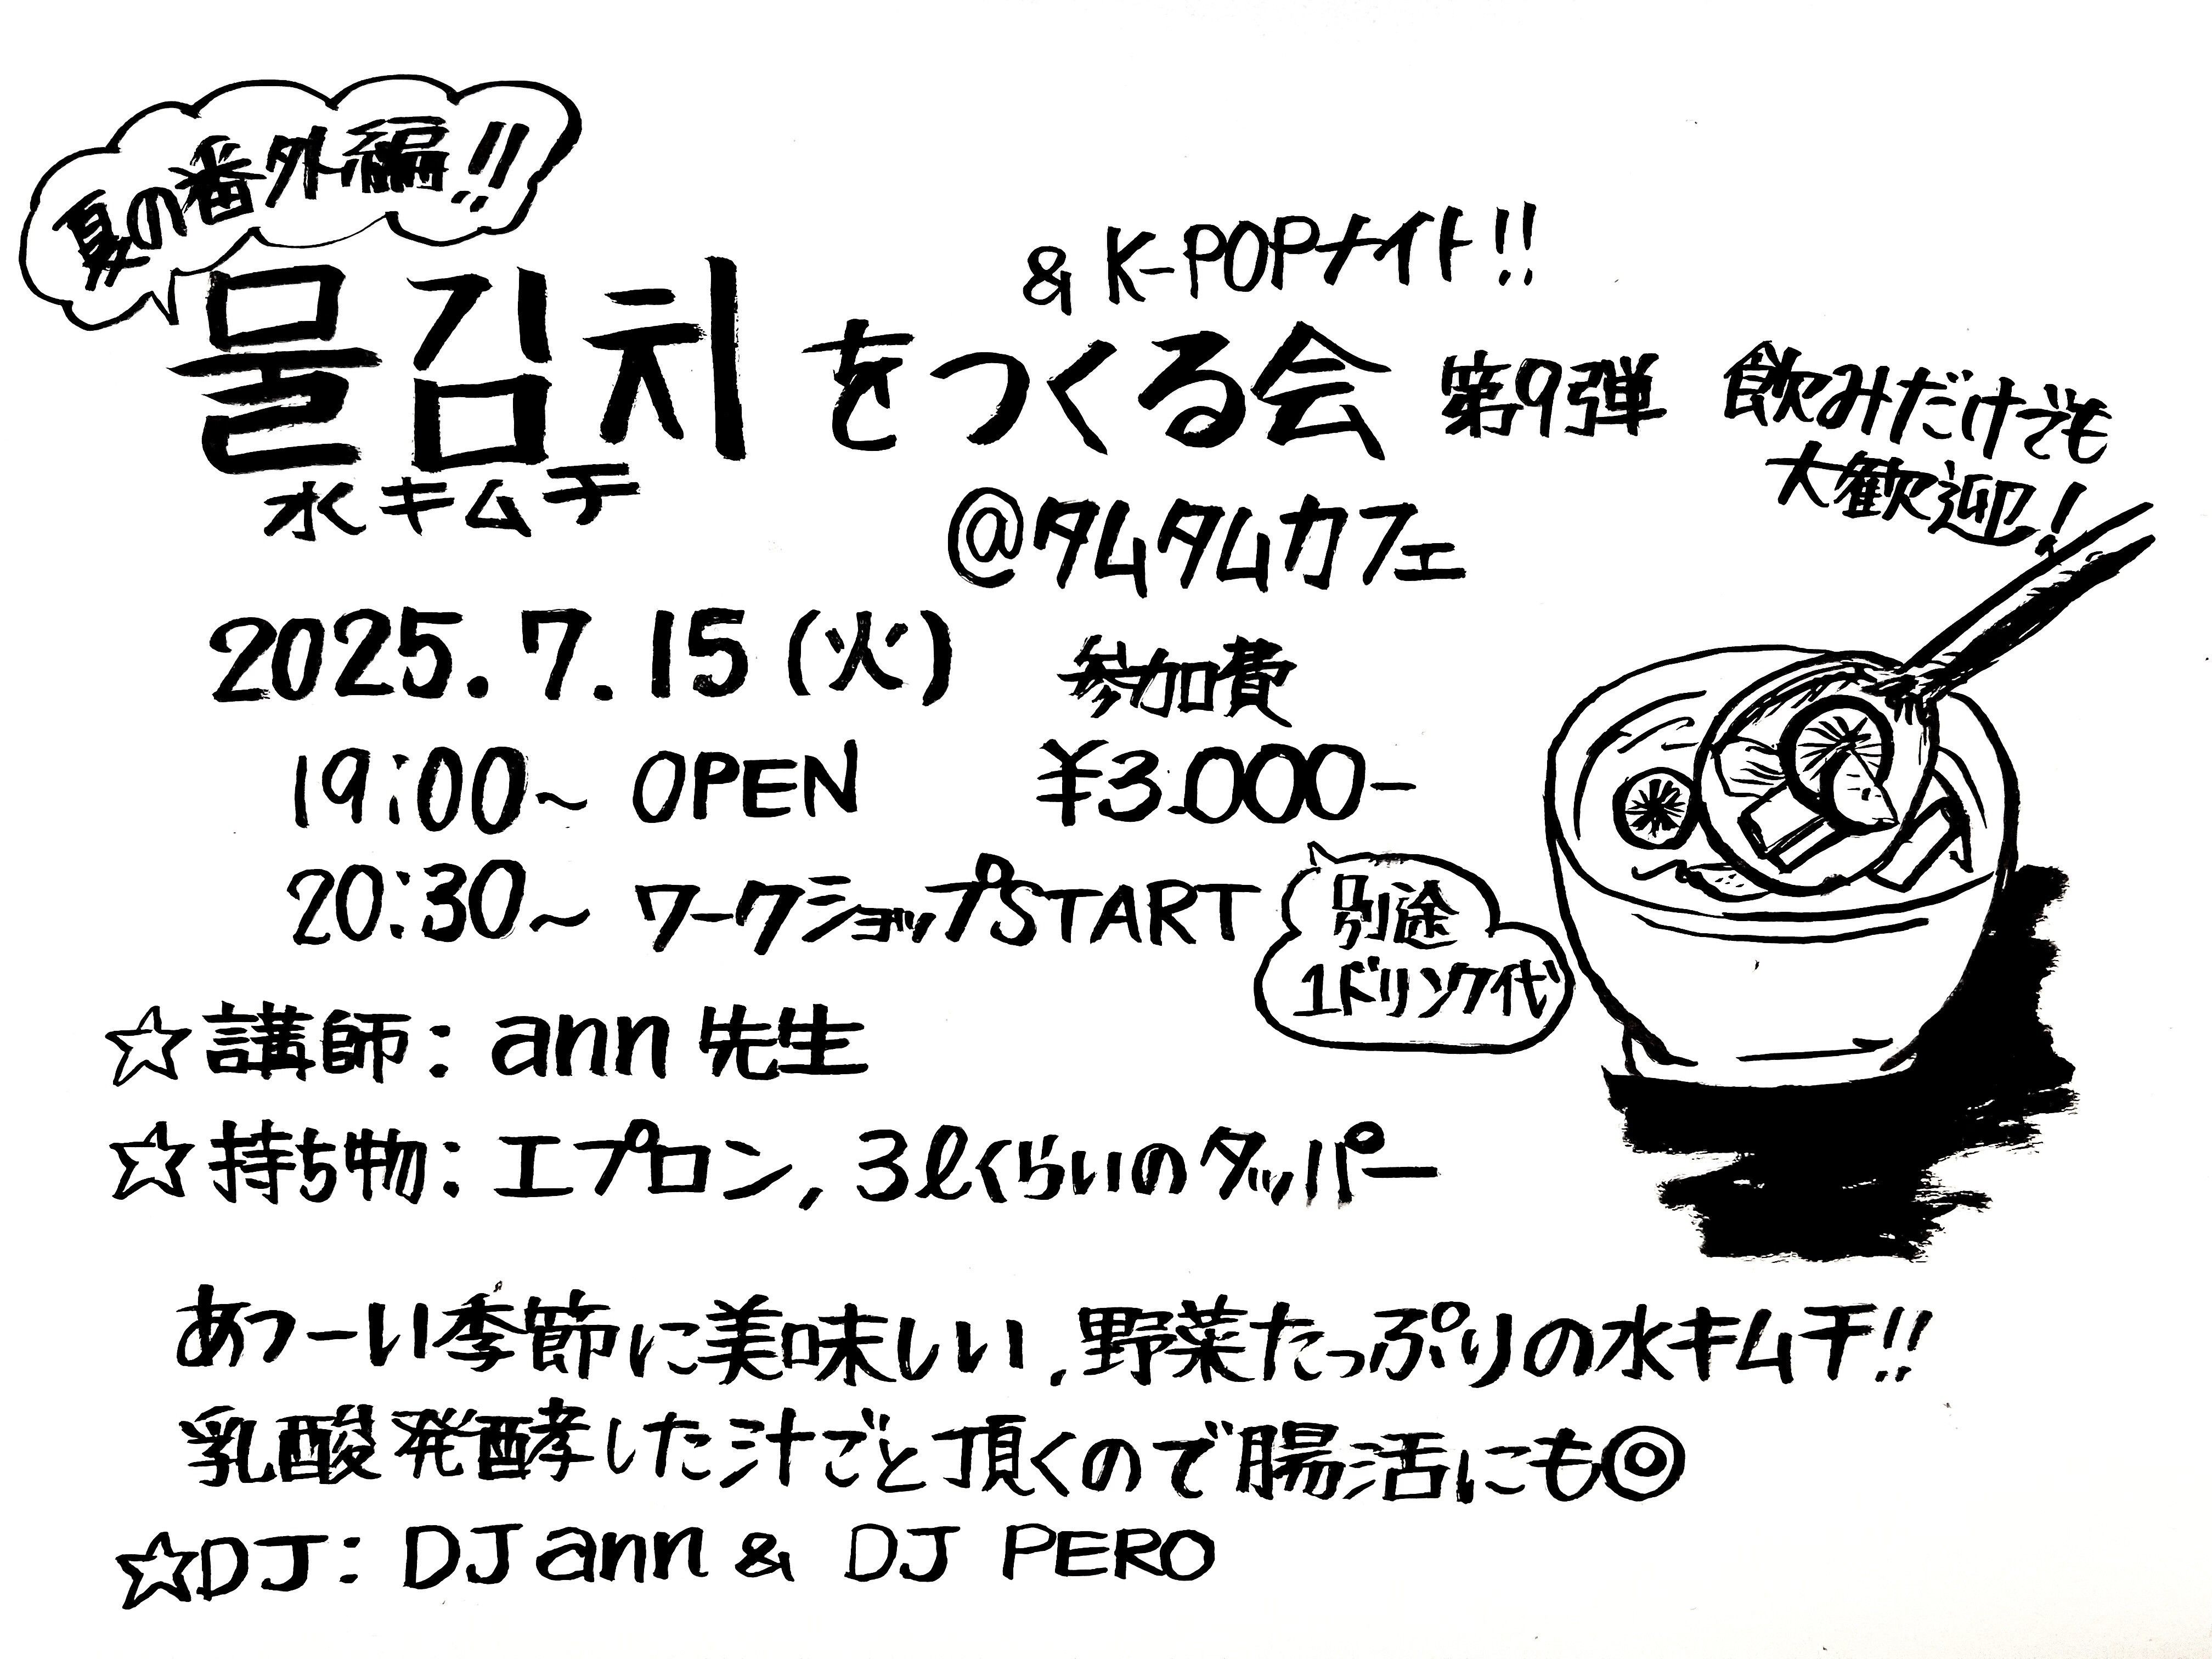 夏の番外編!!
& K-POPナイト!!
물김치をつくる会 第9弾
水キムチ
飲みだけでも
大歓迎!
@タムタムカフェ
2025.7.15(火)
参加費
19:00~ OPEN
¥3.000-
20:30~ ワークショップSTART
別途
1ドリンク代
☆講師: ann先生
☆持ち物: エプロン, 3ℓくらいのタッパー
あつーい季節に美味しい、野菜たっぷりの水キムチ!!
乳酸発酵した汁ごと頂くので腸活にも◎
☆DJ: DJ ann & DJ PERO